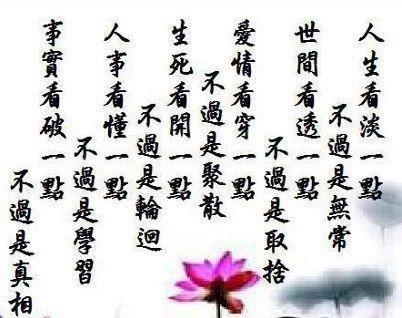 人生看淡一點
不過是無常
世間看透一點
不過是取捨
愛情看穿一點
不過是聚散
生死看開一點
不過是輪迴
人事看懂一點
不過是學習
事實看破一點
不過是真相